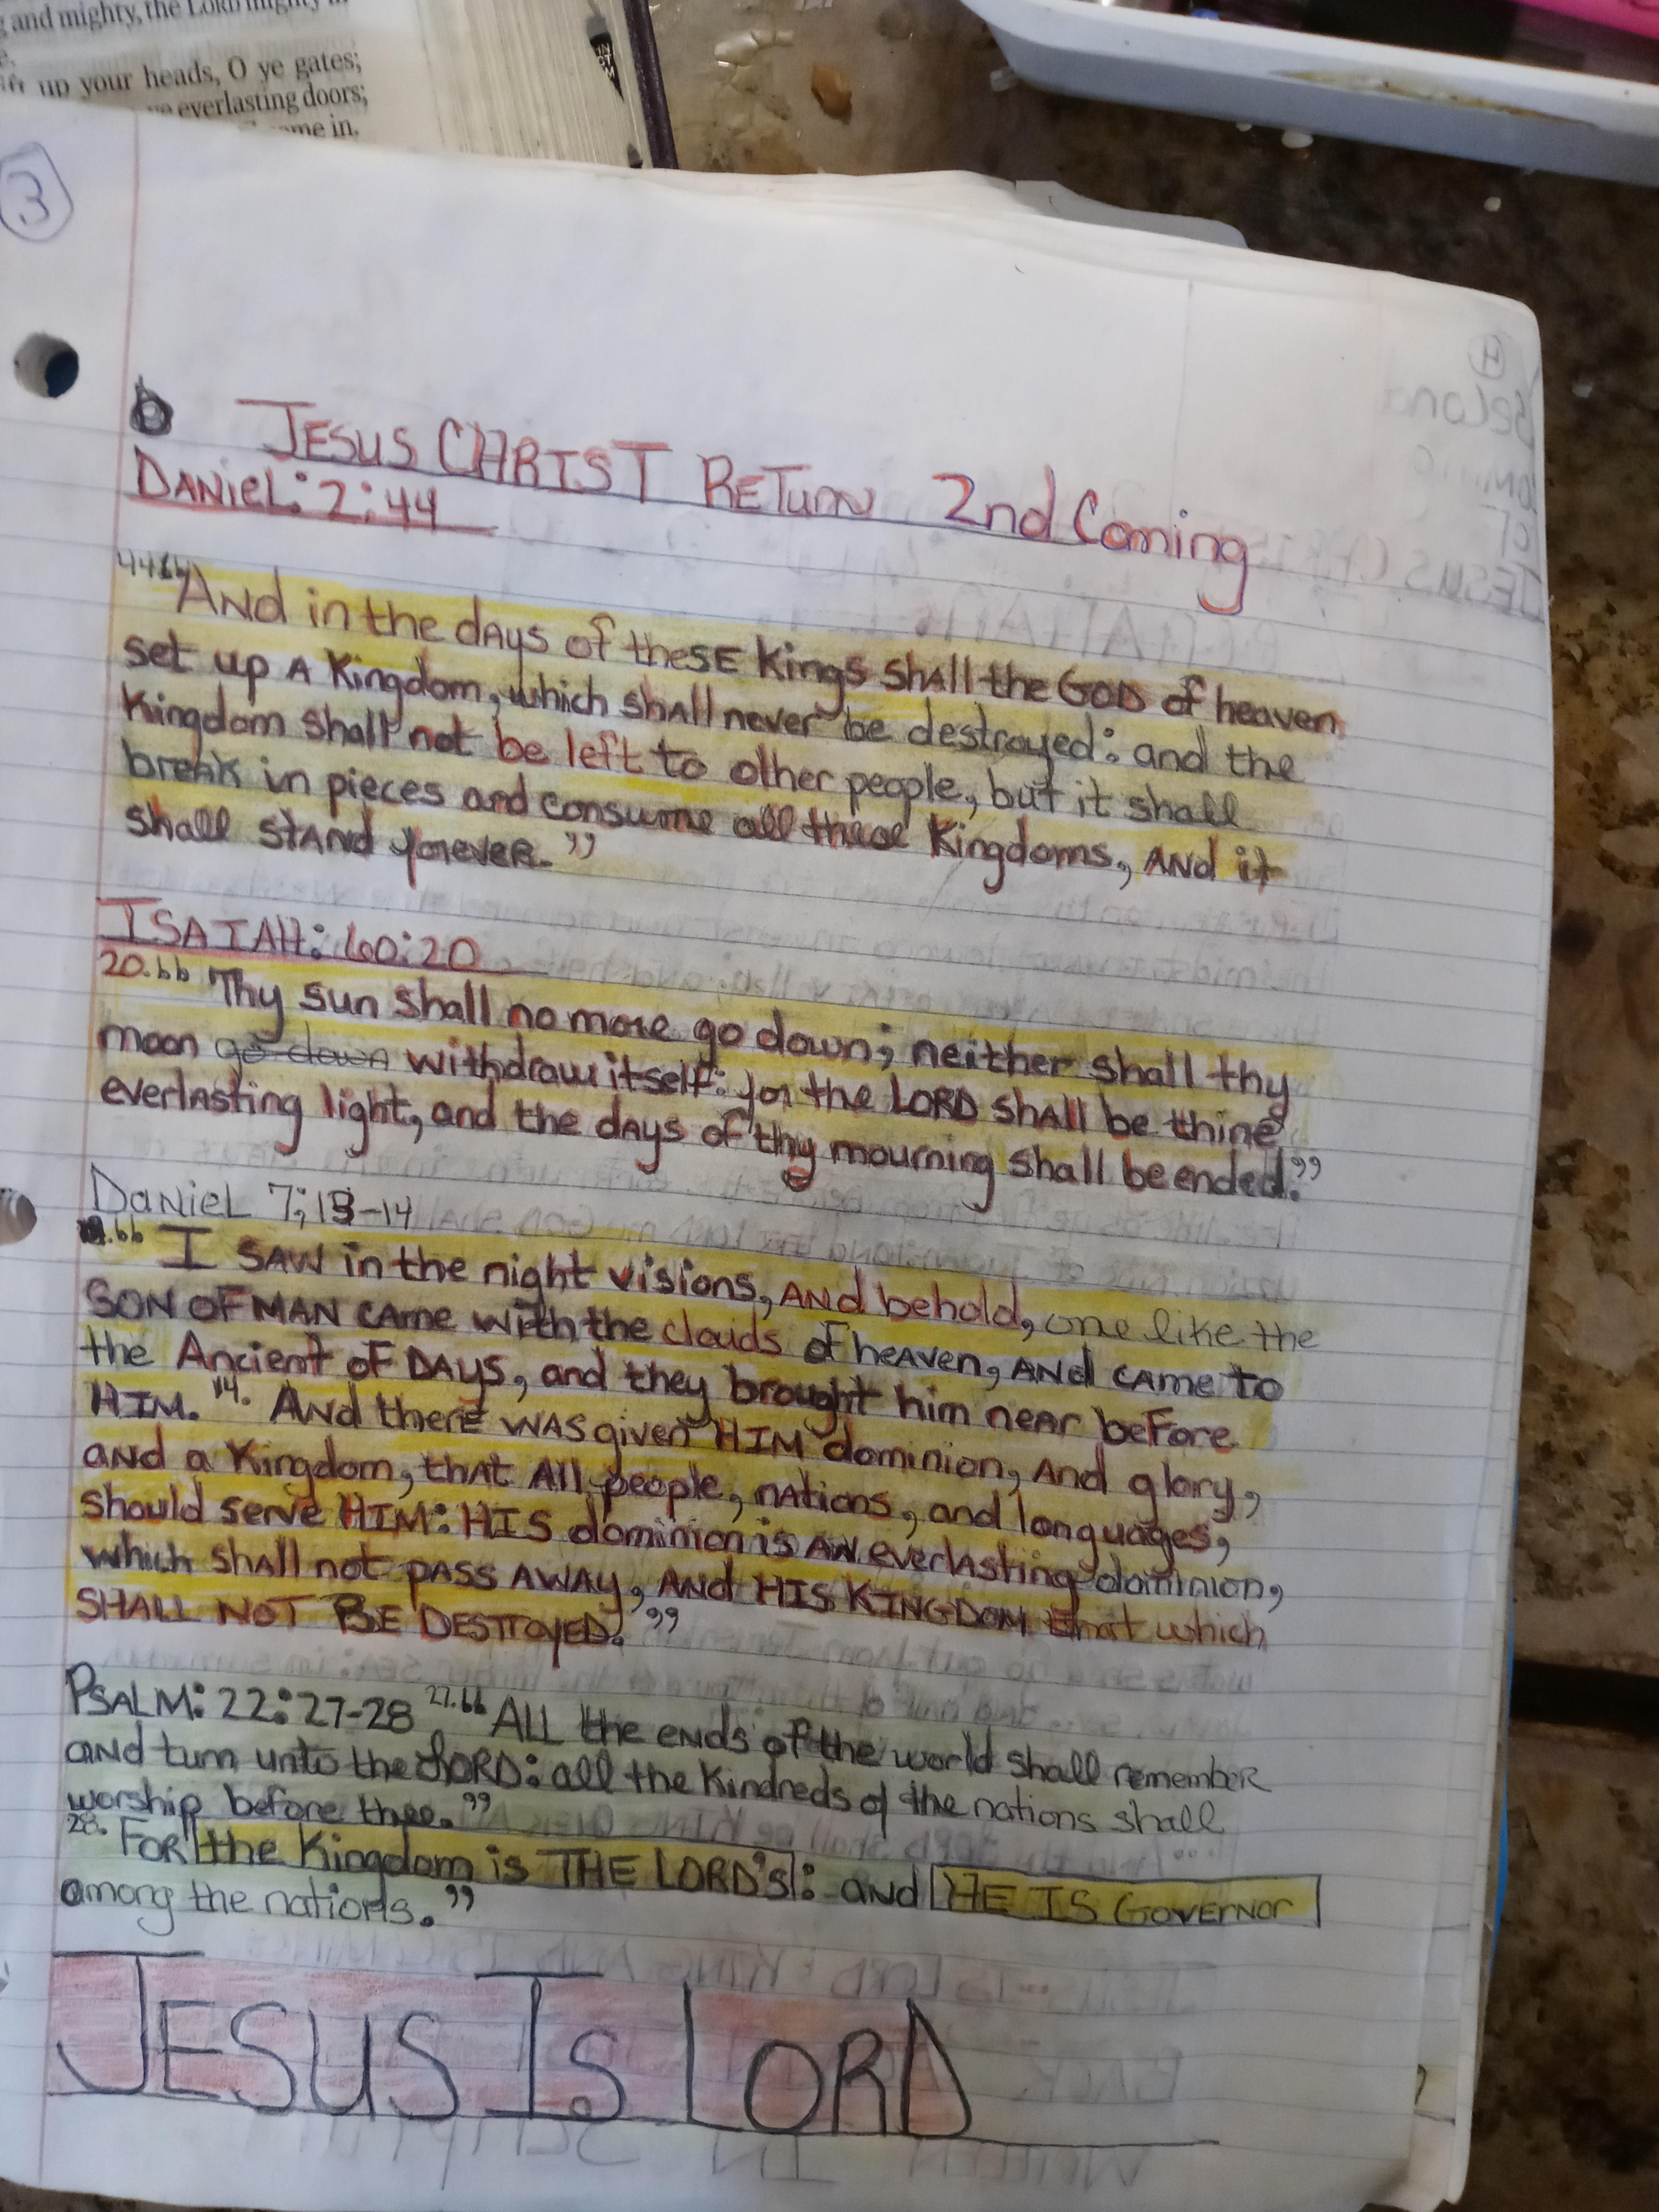 and mighty, the LORD mighty in
up your heads, O ye gates;
everlasting doors;
come in.
3
JESUS CHRIST RETURN 2nd Coming
DANIEL: 2:44
44 “And in the days of these Kings shall the GOD of heaven
set up A Kingdom, which shall never be destroyed: and the
Kingdom shall not be left to other people, but it shall
break in pieces and consume all these Kingdoms, AND it
shall STAND forever.”
ISAIAH: 60:20
20. “Thy sun shall no more go down; neither shall thy
moon go down withdraw itself: for the LORD shall be thine
everlasting light, and the days of thy mourning shall be ended.”
Daniel 7:13-14
“I SAW in the night visions, AND behold, one like the
SON OF MAN CAME with the clouds of heaven, AND CAME to
the Ancient OF DAYS, and they brought him near before
HIM. 14. And there WAS given HIM dominion, And glory,
and a Kingdom, that All people, nations, and languages,
should serve HIM: HIS dominion is AN everlasting dominion,
which shall not PASS AWAY, AND HIS KINGDOM that which
SHALL NOT BE DESTROYED.”
PSALM: 22:27-28 27. “ALL the ENDS of the world shall remember
and turn unto the LORD: all the Kindreds of the nations shall
worship before thee.”
28. FOR the Kingdom is THE LORD's: and HE IS GOVERNOR
among the nations.”
JESUS IS LORD